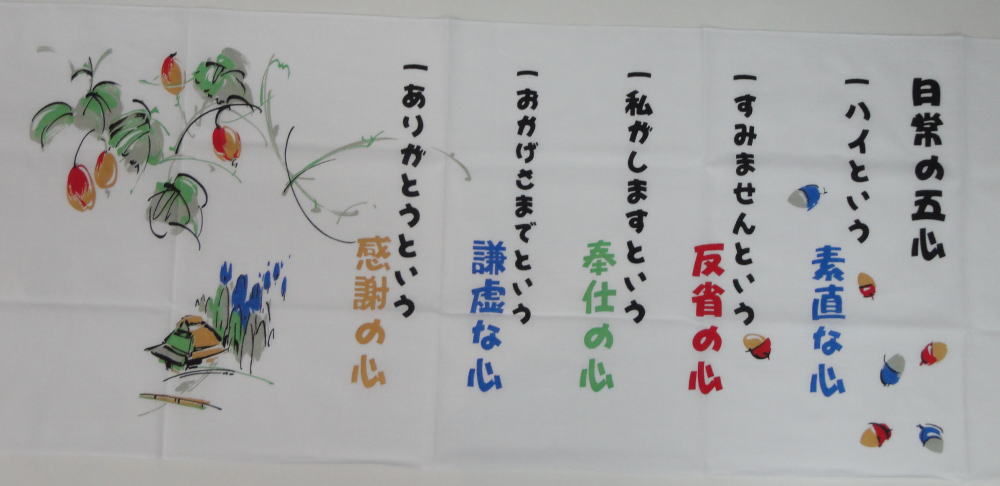 日常の五心
一ハイという
素直な心
一すみませんという
反省の心
一私がしますという
奉仕の心
一おかげさまでという
謙虚な心
一ありがとうという
感謝の心